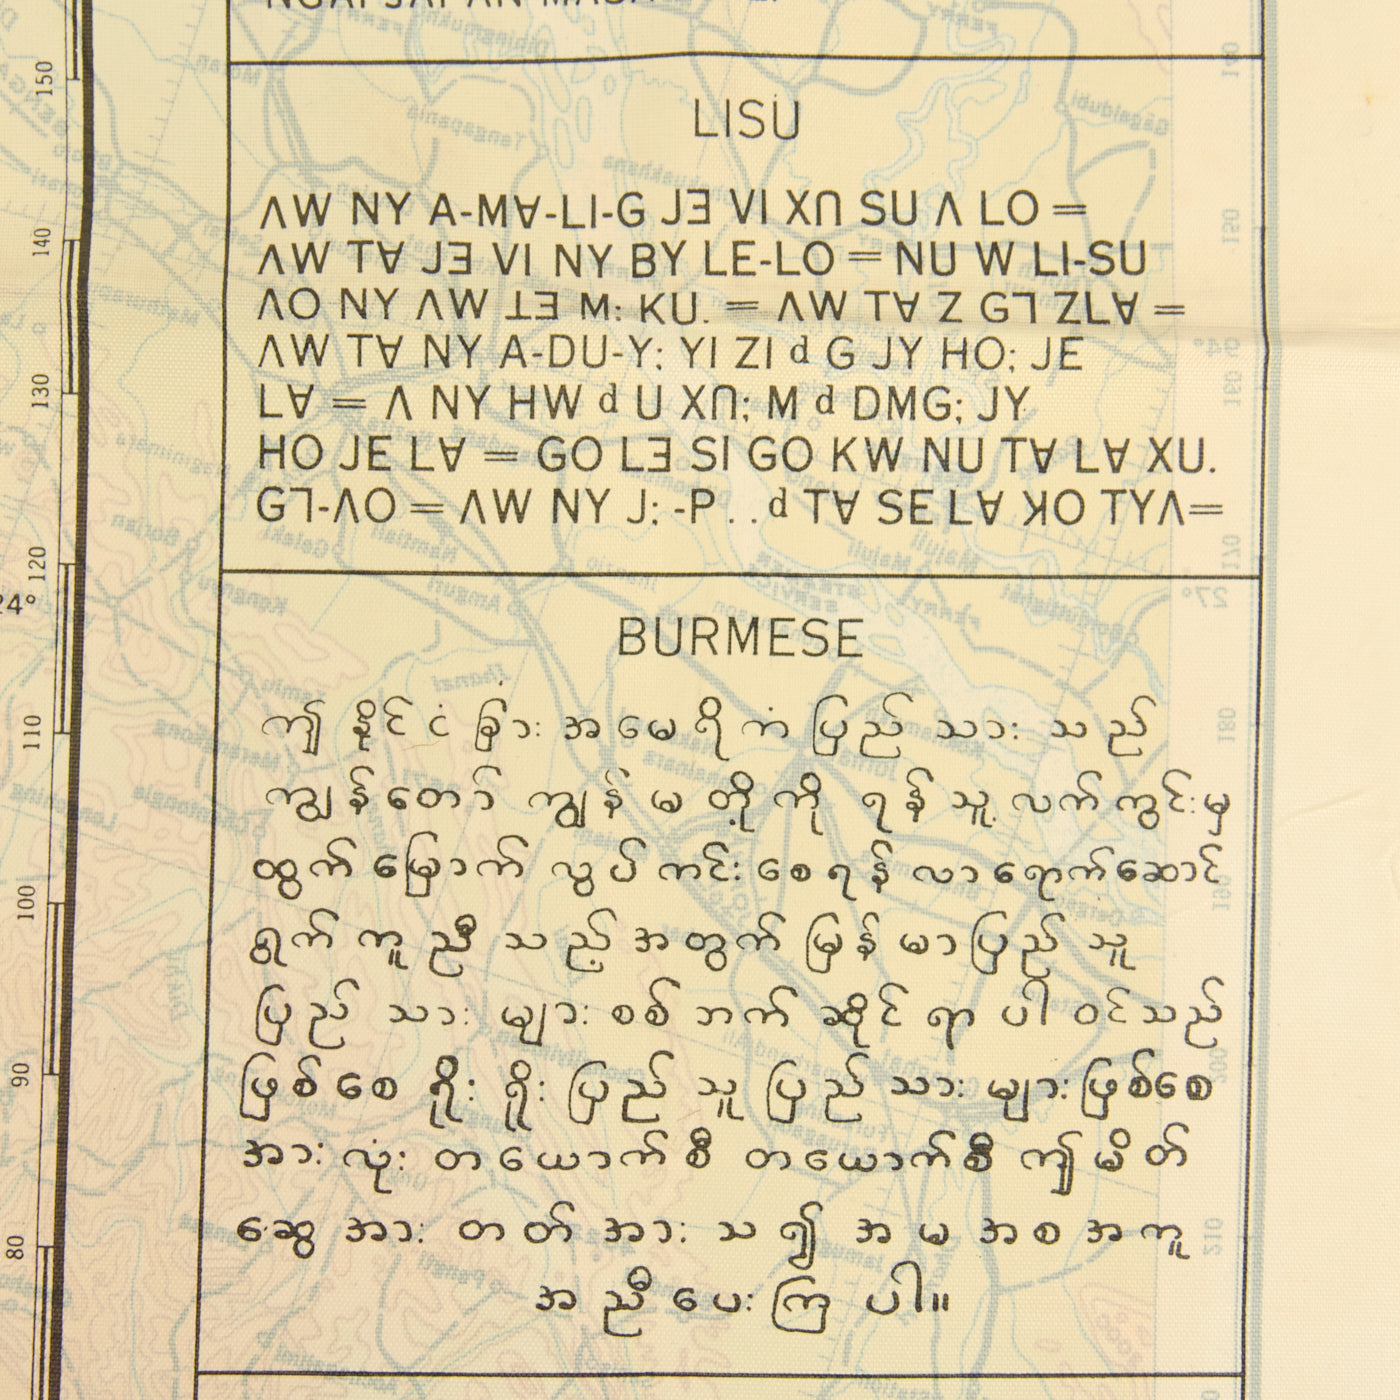 LISU
ꓥW NY A-MⱯ-LI-G JƎ VI XՈ SU Ʌ LO =
ꓥW TⱯ JƎ VI NY BY LE-LO = NU W LI-SU
ꓥO NY ꓥW ꓕƎ M: KU. = ꓥW TⱯ Z G⅂ ZLⱯ =
ꓥW TⱯ NY A-DU-Y; YI ZI d G JY HO; JE
LⱯ = Ʌ NY HW d U XՈ; M d DMG; JY
HO JE LⱯ = GO LƎ SI GO KW NU TⱯ LⱯ XU.
G⅂-ꓥO = ꓥW NY J; -P . . d TⱯ SE LⱯ ꓘO TYꓥ=
BURMESE
ဤ နိုင် ငံ ခြား အ မေ ရိ ကံ ပြည် သား သ ည်
ကျွန် တော် ကျွန် မ တို့ ကို ရန် သူ့ လက် ကွင်း မှ
ထွက် မြောက် လွပ် ကင်း စေ ရန် လာ ရောက် ဆောင်
ရွက် ကူ ညီ သ ည့် အ တွက် မြန် မာ ပြည် သူ
ပြည် သား များ စစ် ဘက် ဆိုင် ရာ ပါ ဝင် သည်
ဖြစ် စေ ရိုး ရိုး ပြည် သူ ပြည် သား များ ဖြစ်စေ
အား လုံး တ ယောက် စီ တ ယောက် စီ ဤ မိတ်
ဆွေ အား တ တ် အား သ ၍ အ မ အ စ အ ကူ
အ ညီ ပေး ကြ ပါ။
150
140
130
120
24°
110
100
90
80